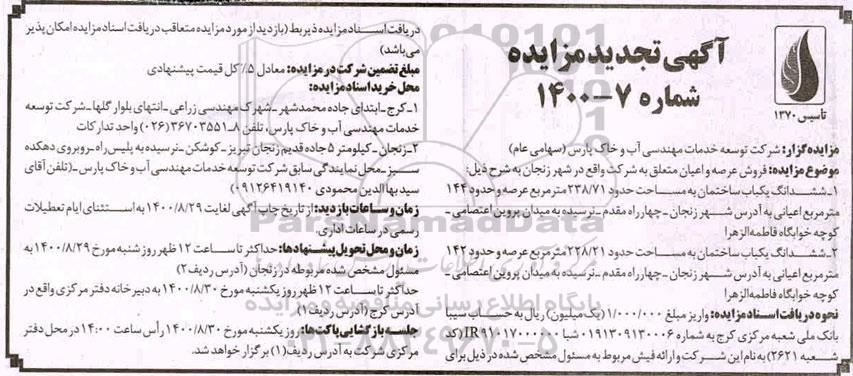 تأسیس ۱۳۷۰
آگهی تجدید مزایده
شماره ۷-۱۴۰۰
مزایده گزار: شرکت توسعه خدمات مهندسی آب و خاک پارس (سهامی عام)
موضوع مزایده: فروش عرصه و اعیان متعلق به شرکت واقع در شهر زنجان به شرح ذیل:
۱_ششدانگ یکباب ساختمان به مساحت حدود ۲۳۸/۷۱ مترمربع عرصه و حدود ۱۴۴
مترمربع اعیانی به آدرس شهر زنجان _ چهارراه مقدم _ نرسیده به میدان پروین اعتصامی _
کوچه خوابگاه فاطمه الزهرا
۲_ششدانگ یکباب ساختمان به مساحت حدود ۲۲۸/۲۱ مترمربع عرصه و حدود ۱۴۲
مترمربع اعیانی به آدرس شهر زنجان _ چهارراه مقدم _ نرسیده به میدان پروین اعتصامی _
کوچه خوابگاه فاطمه الزهرا
نحوه دریافت اسناد مزایده: واریز مبلغ ۱/۰۰۰/۰۰۰ (یک میلیون) ریال به حساب سیبا
بانک ملی شعبه مرکزی کرج به شماره ۰۱۹۱۳۰۹۱۳۰۰۰۶ شبا IR۹۱۰۱۷۰۰۰۰۰ (کد
شعبه ۲۶۲۱) به نام این شرکت و ارائه فیش مربوط به مسئول مشخص شده در ذیل برای
دریافت اسناد مزایده ذیربط (بازدید از مورد مزایده متعاقب دریافت اسناد مزایده امکان پذیر
می باشد)
مبلغ تضمین شرکت در مزایده: معادل ۵٪ کل قیمت پیشنهادی
محل خرید اسناد مزایده:
۱_کرج_ابتدای جاده محمدشهر_شهرک مهندسی زراعی_انتهای بلوار گلها_شرکت توسعه
خدمات مهندسی آب و خاک پارس، تلفن ۸_۳۶۷۰۳۵۵۱(۰۲۶) واحد تدارکات
۲_زنجان_کیلومتر ۵ جاده قدیم زنجان تبریز_کوشکن_نرسیده به پلیس راه_روبروی دهکده
سبز_محل نمایندگی سابق شرکت توسعه خدمات مهندسی آب و خاک پارس_(تلفن آقای
سید بها الدین محمودی ۰۹۱۲۶۴۱۹۱۴۰)
زمان و ساعات بازدید: از تاریخ چاپ آگهی لغایت ۱۴۰۰/۸/۲۹ به استثنای ایام تعطیلات
رسمی در ساعات اداری.
زمان و محل تحویل پیشنهادها: حداکثر تا ساعت ۱۲ ظهر روز شنبه مورخ ۱۴۰۰/۸/۲۹ به
مسئول مشخص شده مربوطه در زنجان (آدرس ردیف ۲)
حداکثر تا ساعت ۱۲ ظهر روز یکشنبه مورخ ۱۴۰۰/۸/۳۰ به دبیرخانه دفتر مرکزی واقع در
آدرس کرج (آدرس ردیف ۱)
جلسه بازگشایی پاکت ها: روز یکشنبه مورخ ۱۴۰۰/۸/۳۰ رأس ساعت ۱۴:۰۰ در محل دفتر
مرکزی شرکت به آدرس ردیف (۱) برگزار خواهد شد.
ParsNamadData
پایگاه اطلاع رسانی مناقصه و مزایده
۰۲۱-۸۸۳۴۹۶۷۰-۵